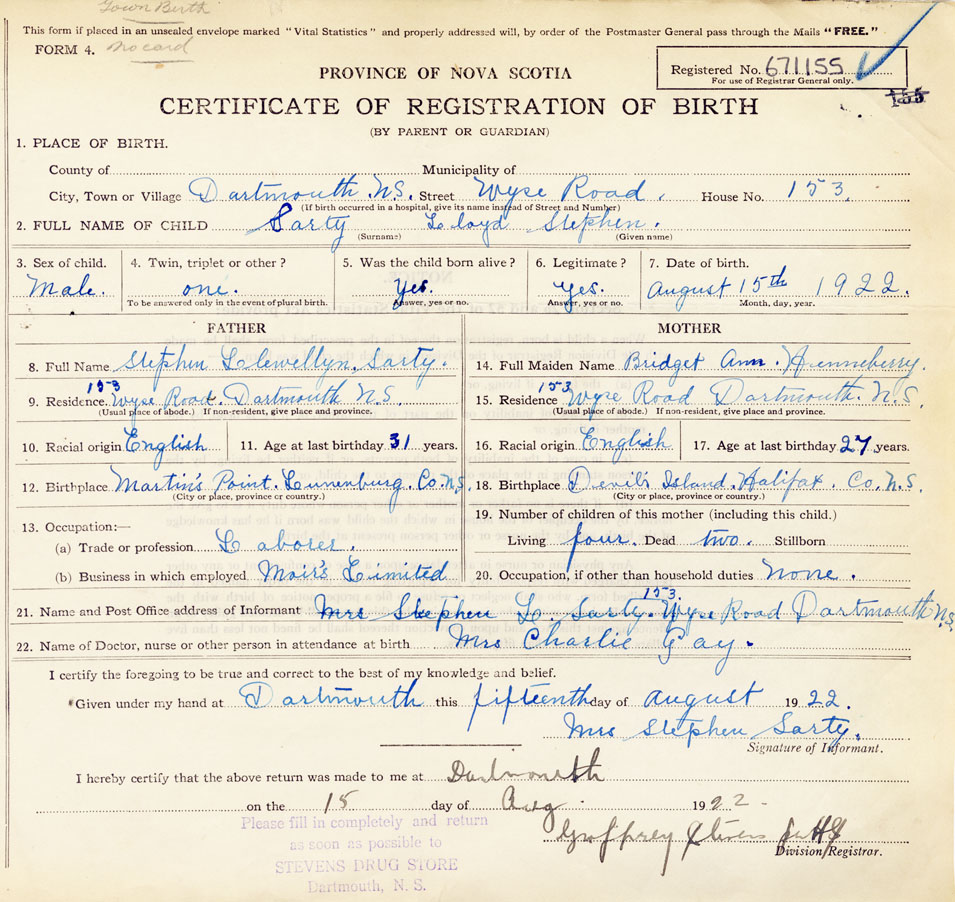 Town Birth
This form if placed in an unsealed envelope marked "Vital Statistics" and properly addressed will, by order of the Postmaster General pass through the Mails "FREE."
FORM 4. no card
Registered No. 671155
For use of Registrar General only.
155
PROVINCE OF NOVA SCOTIA
CERTIFICATE OF REGISTRATION OF BIRTH
(BY PARENT OR GUARDIAN)
1. PLACE OF BIRTH.
County of Municipality of
City, Town or Village Dartmouth N.S. Street Wyse Road. House No. 153.
(If birth occurred in a hospital, give its name instead of Street and Number)
2. FULL NAME OF CHILD Sarty Lloyd Stephen.
(Surname) (Given name)
3. Sex of child. 4. Twin, triplet or other? 5. Was the child born alive? 6. Legitimate? 7. Date of birth.
Male. one. Yes. Yes. August 15th 1922.
To be answered only in the event of plural birth. Answer, yes or no. Answer, yes or no. Month, day, year.
FATHER MOTHER
8. Full Name Stephen Llewellyn Sarty. 14. Full Maiden Name Bridget Ann. Henneberry.
9. Residence. 153 Wyse Road. Dartmouth N.S. 15. Residence 153 Wyse Road Dartmouth. N.S.
(Usual place of abode.) If non-resident, give place and province. (Usual place of abode.) If non-resident, give place and province.
10. Racial origin English 11. Age at last birthday 31 years. 16. Racial origin English 17. Age at last birthday 27 years.
12. Birthplace Martin's Point. Lunenburg. Co. N.S. 18. Birthplace Devil's Island. Halifax. Co. N.S.
(City or place, province or country.) (City or place, province or country.)
13. Occupation:— 19. Number of children of this mother (including this child.)
(a) Trade or profession Laborer. Living four. Dead two. Stillborn
(b) Business in which employed Moir's Limited 20. Occupation, if other than household duties None.
21. Name and Post Office address of Informant Mrs Stephen L. Sarty. 153. Wyse Road Dartmouth N.S.
22. Name of Doctor, nurse or other person in attendance at birth Mrs Charlie Gay.
I certify the foregoing to be true and correct to the best of my knowledge and belief.
Given under my hand at Dartmouth this fifteenth day of August 1922.
Mrs Stephen Sarty.
Signature of Informant.
I hereby certify that the above return was made to me at Dartmouth
on the 15 day of Aug. 1922.
Geoffrey Stevens
Division Registrar.
Please fill in completely and return
as soon as possible to
STEVENS DRUG STORE
Dartmouth, N. S.